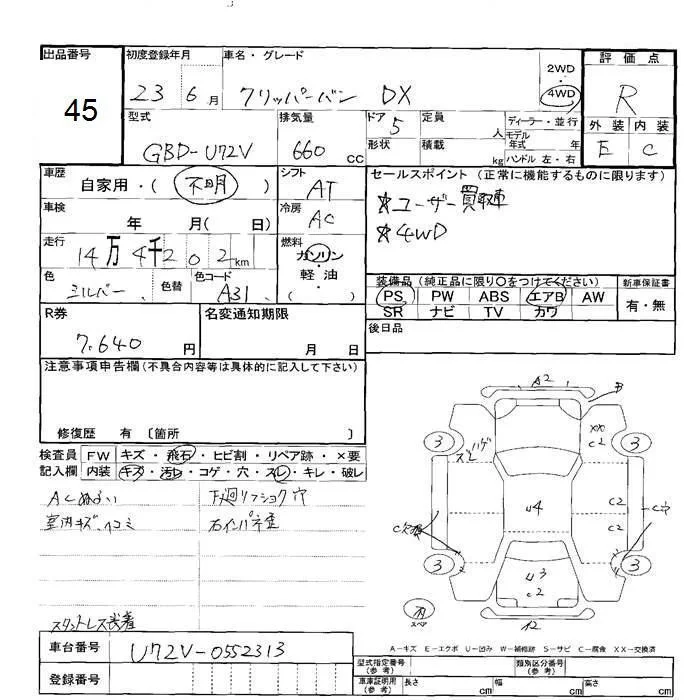 出品番号
45
初度登録年月
23 6月
車名・グレード
クリッパーバン DX
2WD
・
4WD
評価点
R
型式
GBD-U72V
排気量
660 cc
ドア
5
形状
定員
人
積載
kg
ディーラー・並行
モデル
年式 年
ハンドル 左・右
外装 内装
E C
車歴
自家用・(不明)
シフト
AT
車検
年 月( 日)
冷房
AC
走行
14万4千202km
燃料
ガソリン
軽油
( )
色
シルバー
色替
色コード
A31
セールスポイント(正常に機能するものに限ります)
★ユーザー買取車
★4WD
装備品(純正品に限り○をつけてください)
PS PW ABS エアB AW
SR ナビ TV カワ
新車保証書
有・無
R券
7.640円
名変通知期限
月 日
後日品
注意事項申告欄(不具合内容等は具体的に記入して下さい)
修復歴 有 〔箇所 〕
検査員
記入欄
FW キズ・飛石・ヒビ割・リペア跡・×要
内装 キズ・汚れ・コゲ・穴・スレ・キレ・破レ
ACぬるい
室内キズ、ヨゴミ
下廻りフショク穴
スタットレス装着
A2
B
3
3
XX
C2
ハゲ
U4
C2
C2
C穴
3
3
U3
C2
12
スペア
A-キズ E-エクボ U-凹み W-補修跡 S-サビ C-腐食 XX-交換済
車台番号
U72V-0552313
登録番号
型式指定番号
(参考)
類別区分番号
(参考)
車庫証明用
(参考)
長さ cm
幅 cm
高さ cm